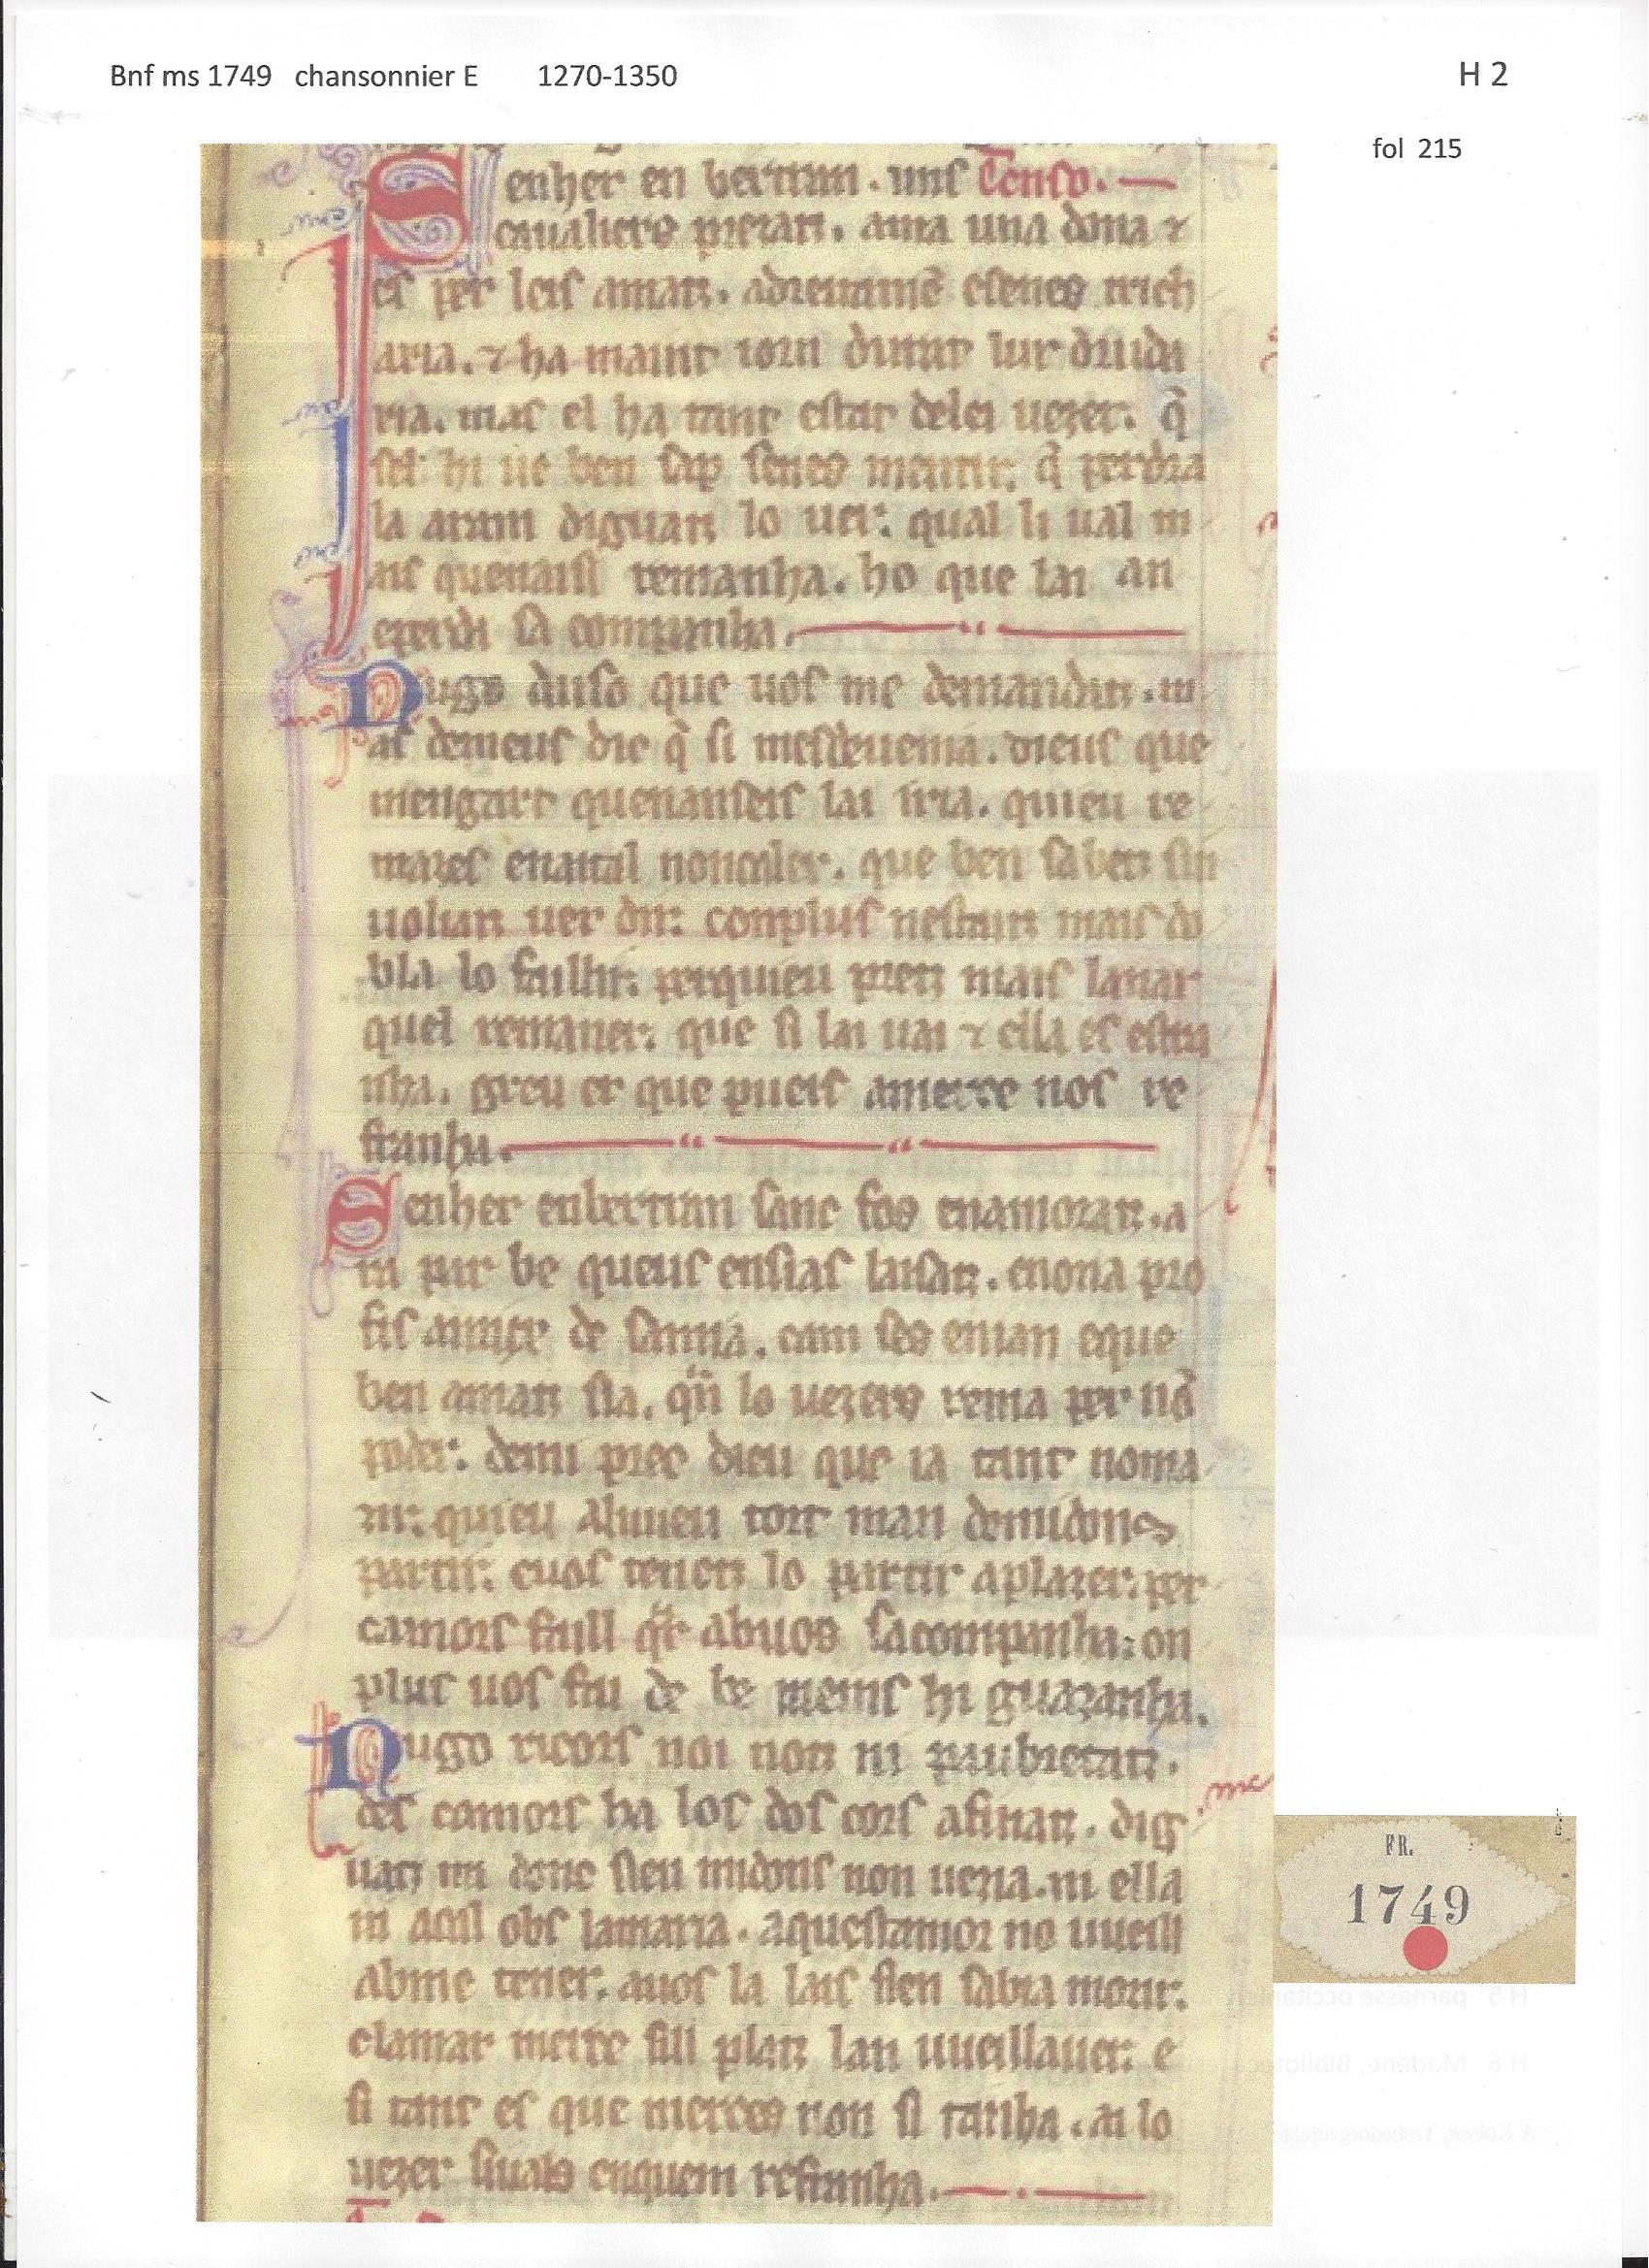 Bnf ms 1749 chansonnier E 1270-1350
H 2
fol 215
Senher en bertran. uns Tenso.
caualiers prezatz. ama una dona ⁊
es per leis amatz. adreitamē esenes trich
aria. ⁊ ha maint iorn durat lur druda
ria. mas el ha tant estat delei uezer. q̄
sel hi ue ben sap senes mentir. q̄ perdra
la aram diguatz lo uer. qual li ual m
ais quenaissi remanha. ho que lai an
eperda sa companha.
Nugo aiso que uos me demandatz. m
as demeus dic q̄ si mesdeuenia. dieus que
mengart quenanseis lai iria. quieu re
mazes enaital noncaler. que ben sabetz sin
uoliatz uer dir. complus nestaitz mais do
bla lo faillir. perquieu pretz mais lanar
quel remaner. que si lai uai ⁊ ella es estra
nha. greu er que pueis amerce nos re
franha.
Senher enbertran sanc fos enamoratz. a
ra par be queus ensiatz laisatz. enona pro
fis amics de samia. cam ses enian eque
ben amatz sia. qn̄ lo uezers rema per nō
poder. demi prec dieu que ia tant noma
zir. quieu aluueu tort man demidons
partir. euos tenetz lo partir aplazer. per
camors faill qr̄ abuos sacompanha. on
plus uos fai de be meins hi guazanha.
Nugo ricors noi notz ni paubretatz.
des camors ha los dos cors afinatz. dig
uatz mi donc sieu midons non uezia. ni ella
mi acal obs lamaria. aquestamor no uueill
abme tener. auos la lais sien sabia morir.
clamar merce sill platz lan uueillauer. e
si tant es que merces non si tanha. ai lo
uezer siuals enquem refranha.
FR.
1749